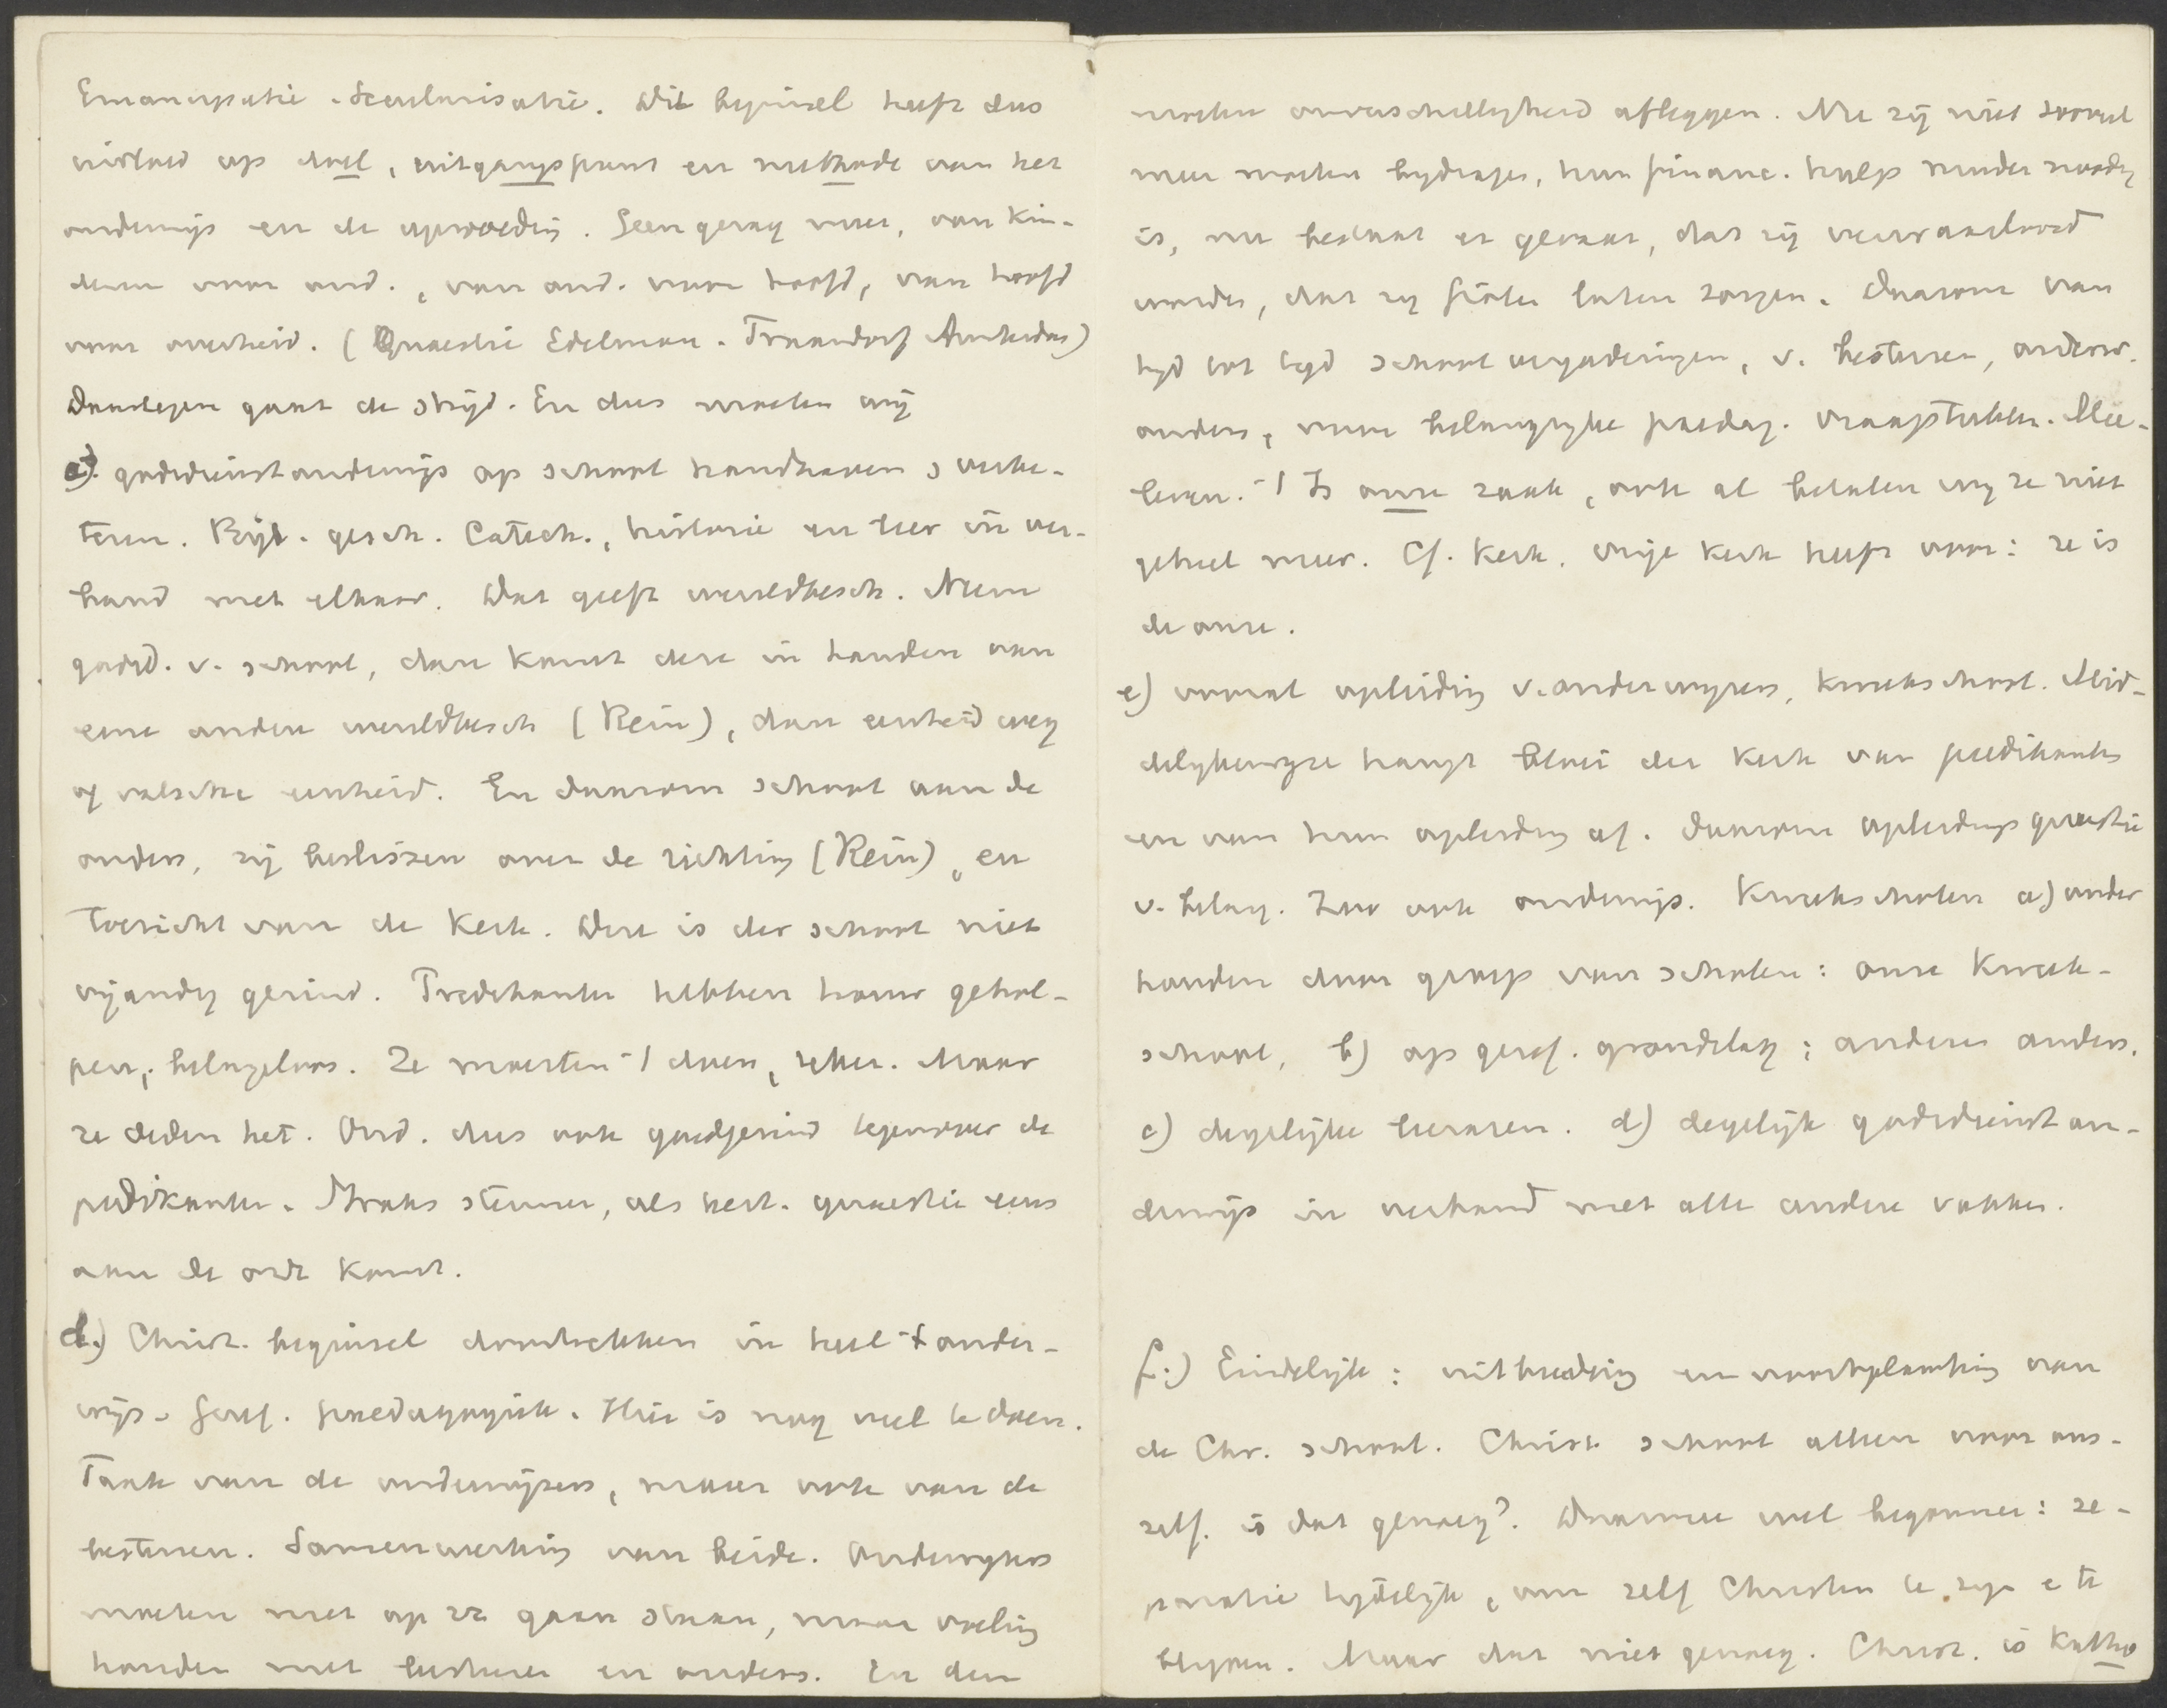 Emancipatie. Secularisatie. Dit beginsel heeft dus
invloed op doel, uitgangspunt en methode van het
onderwijs en de opvoeding. Geen gezag meer, van kin-
deren voor ond., van ond. voor hoofd, van hoofd
voor overheid. (Quaestie Edelman. Amsterdam)
Daartegen gaat de strijd. En dus moeten wij
c). godsdienstonderwijs op school handhaven & verbe-
teren. Bijb. gesch. Catech., historie en leer in ver-
band met elkaar. Dat geeft wereldbesch. Neem
godsd. v. school, dan komt deze in handen van
eene andere wereldbesch (Rein), dan eenheid weg
of valsche eenheid. En daarom school aan de
ouders, zij beslissen over de richting (Rein), en
Toezicht van de Kerk. Deze is der school niet
vijandig gezind. Predikanten hebben haar gehol-
pen, belangeloos. Ze moesten 't doen, zeker. Maar
ze deden het. Ond. dus ook goedgezind tegenover de
predikanten. Straks steunen, als quaestie eens
aan de orde komt.
d.) Christ. beginsel doortrekken in heel 't onder-
wijs. Geref. paedagogiek. Hier is nog veel te doen.
Taak van de onderwijzers, maar ook van de
besturen. Samenwerking van beide. Onderwijzers
moeten niet op zz gaan staan, maar voeling
houden met besturen en ouders. En deze
moeten onverschilligheid afleggen. Nu zij niet zooveel
meer moeten bijdragen, hun financ. hulp minder noodig
is, nu bestaat er gevaar, dat zij verwaarloosd
worden, dat zij laten zorgen. Daarom van
tijd tot tijd schoolvergaderingen, v. besturen, onderw.
ouders, over belangrijke paedag. vraagstukken. Mee-
leven. 't Is onze zaak, ook al betalen wij ze niet
geheel meer. Cf. Kerk. Vrije Kerk heeft voor: ze is
de onze.
e) vooral opleiding v. onderwijzers, kweekschool. Mid-
delijkerwijze hangt bloei der Kerk van predikanten
en van hun opleiding af. Daarom opleidingsquaestie
v. belang. Zoo ook onderwijs. Kweekscholen a) onder
houden door groep van scholen: onze Kweek-
school, b) op geref. grondslag; anders anders.
c) degelijke leeraren. d) degelijk godsdienston-
derwijs in verband met alle andere vakken.
f.) Eindelijk: uitbreiding en voortplanting van
de Chr. school. Christ. school alleen voor ons-
zelf. is dat genoeg? Daarmee wel begonnen: se-
paratie tijdelijk, om zelf Christen te zijn e te
blijven. Maar dat niet genoeg. Christ. is Katho